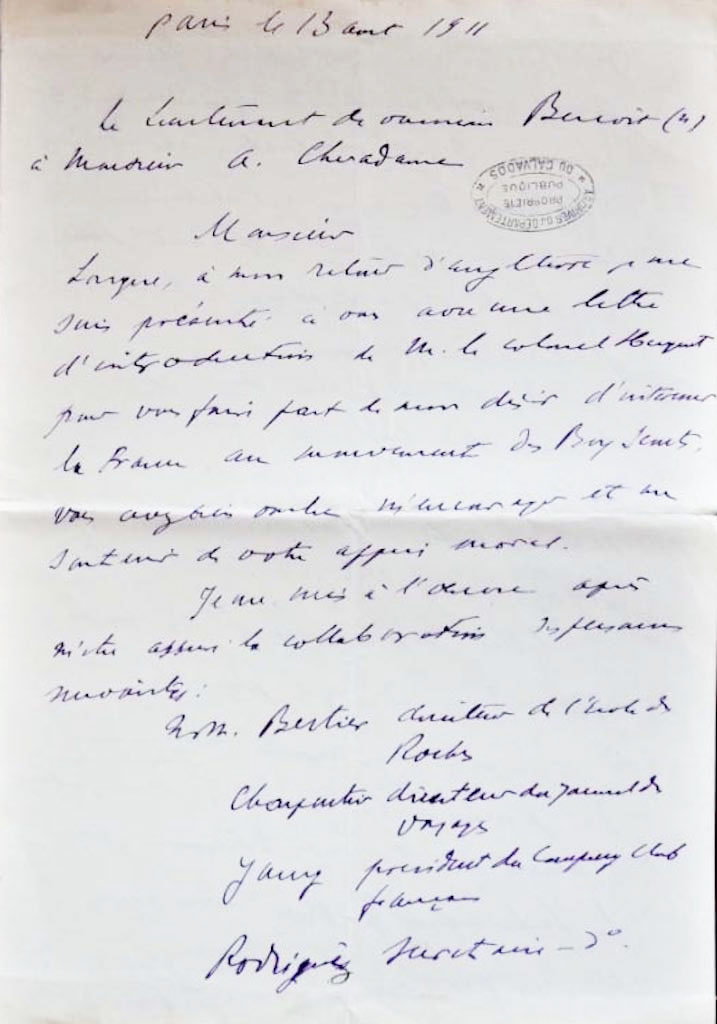 Paris le 13 aout 1911
le Lieutenant de vaisseau Benoit (N)
à Monsieur A. Cheradame
ARCHIVES DU DÉPARTEMENT
DU CALVADOS
PROPRIÉTÉ
PUBLIQUE
Monsieur
Lorsque, à mon retour d'angleterre je me
suis présenté à vous avec une lettre
d'introduction de M. le colonel Huguet
pour vous faire part de mon désir d'interesser
la France au mouvement des Boy Scouts,
vous avez bien voulu m'encourager et me
soutenir de votre appui moral.
Je me mis à l'oeuvre après
m'être assuré la collaboration des personnes
suivantes:
MM. Bertier directeur de l'école des
Roches
Charpentier directeur du Journal des
Voyages
Jamy president du Camping Club
français
Rodriguez secrétaire - d°.